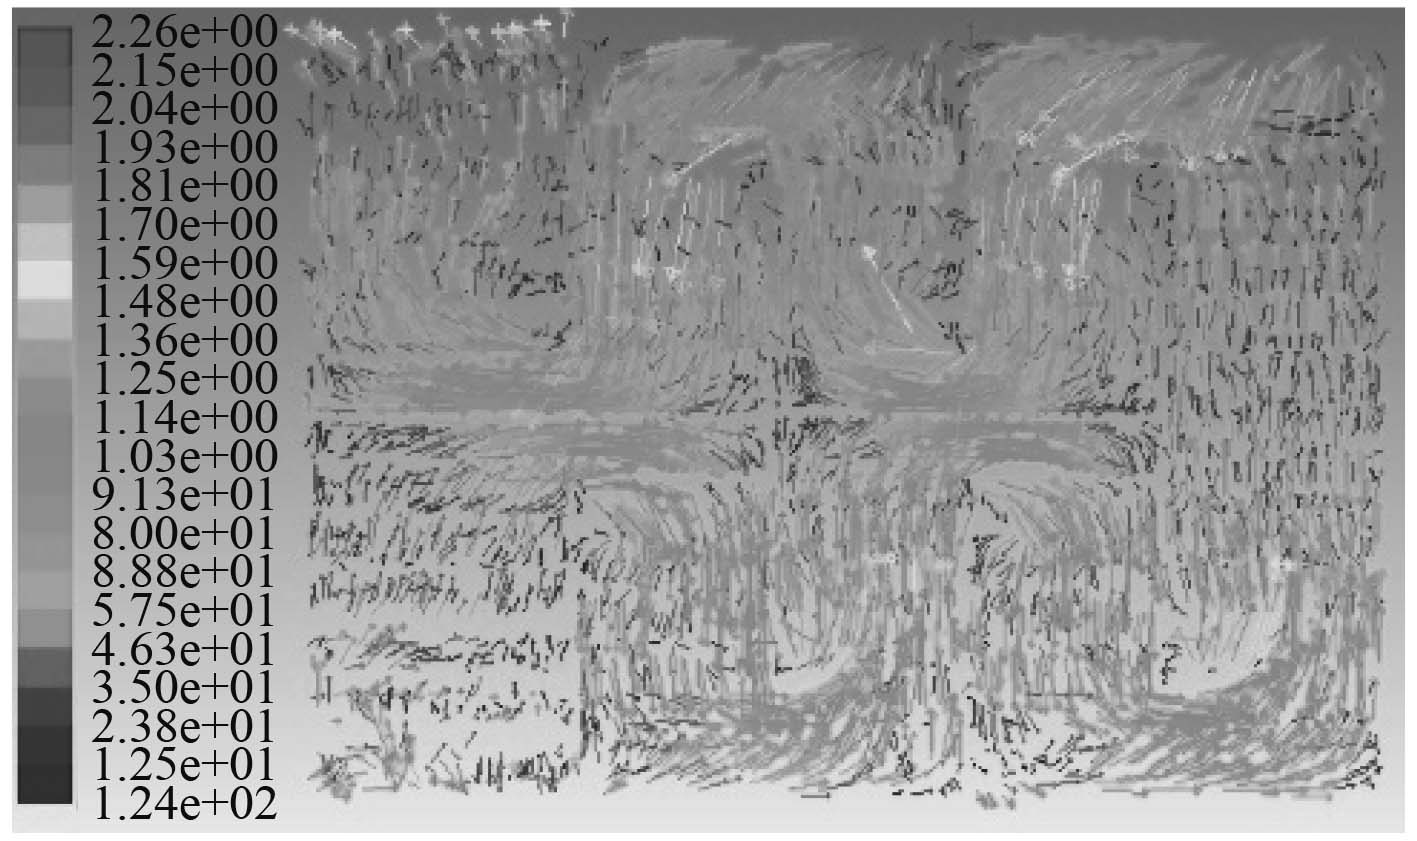 2.26e+00
2.15e+00
2.04e+00
1.93e+00
1.81e+00
1.70e+00
1.59e+00
1.48e+00
1.36e+00
1.25e+00
1.14e+00
1.03e+00
9.13e+01
8.00e+01
8.88e+01
5.75e+01
4.63e+01
3.50e+01
2.38e+01
1.25e+01
1.24e+02